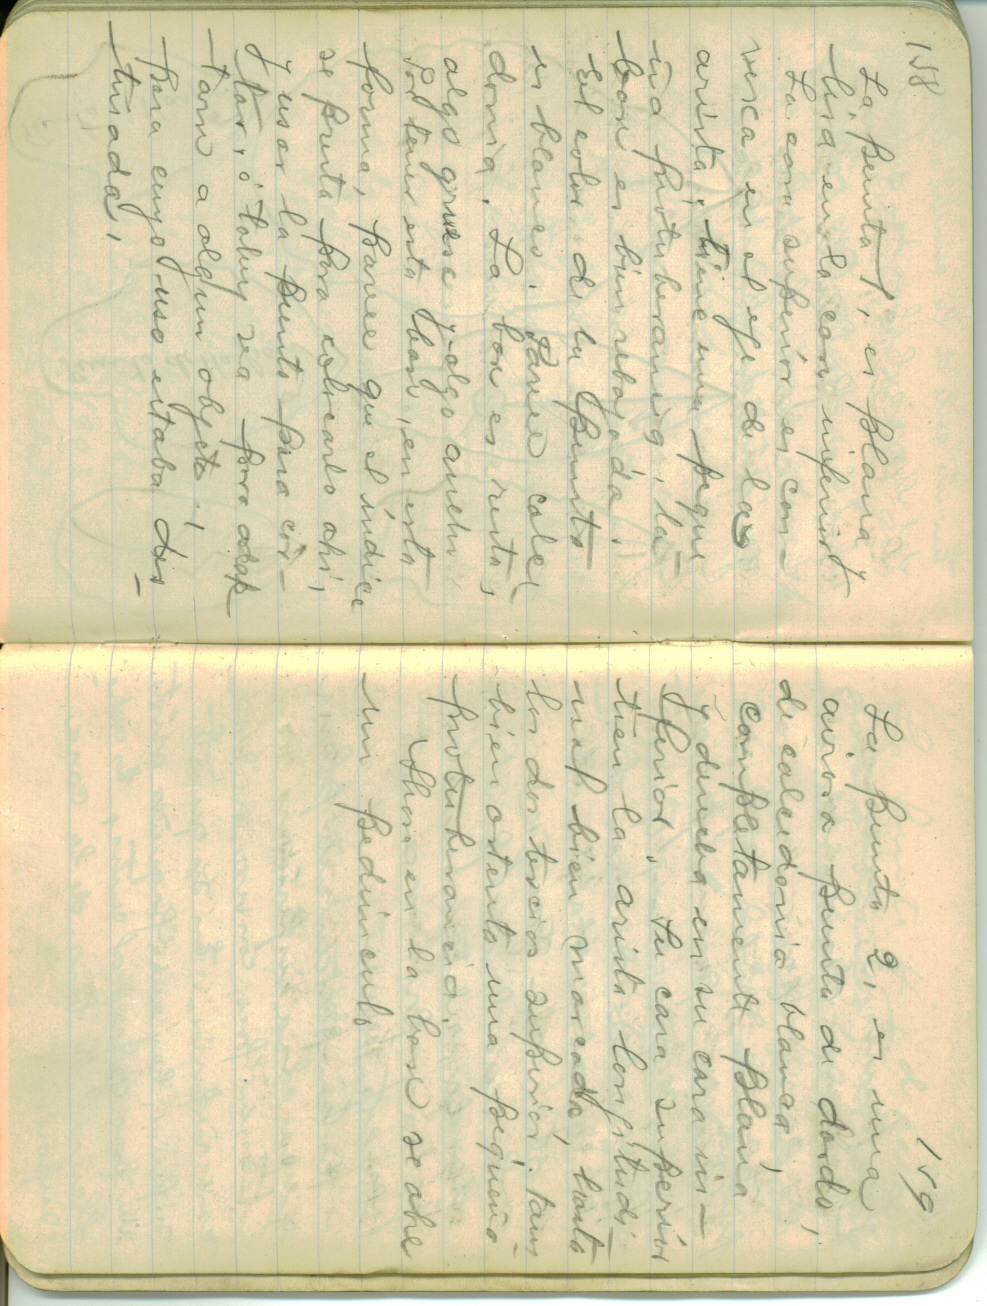 158
La punta 1, es plana y
lisa en la cara inferior
La cara superior es con-
vexa en el eje de la
arista, tiene una peque
ña protuberancia, la
base es bien rebajada.
El color de la punta
es blanco. Parece calce-
donia. La base es recta,
algo gruesa y algo ancha
Por tener esta base, en esta
forma, parece que el índice
se presta para colocarlo ahí,
y usar la punta para cor-
tar, ó talvez sea para adap
tarse a algun objeto,
para cuyo uso estaba des-
tinada.
159
La punta 2, es una
airosa punta de dardo,
de calcedonia blanca,
completamente plana
y derecha en su cara in-
ferior. Su cara superior
tien la arista longitudi-
nal bien marcada, hasta
los dos tercios superior. Tam
bien ostenta una pequeña
protuberancia.
en la base se abre
un pedúnculo